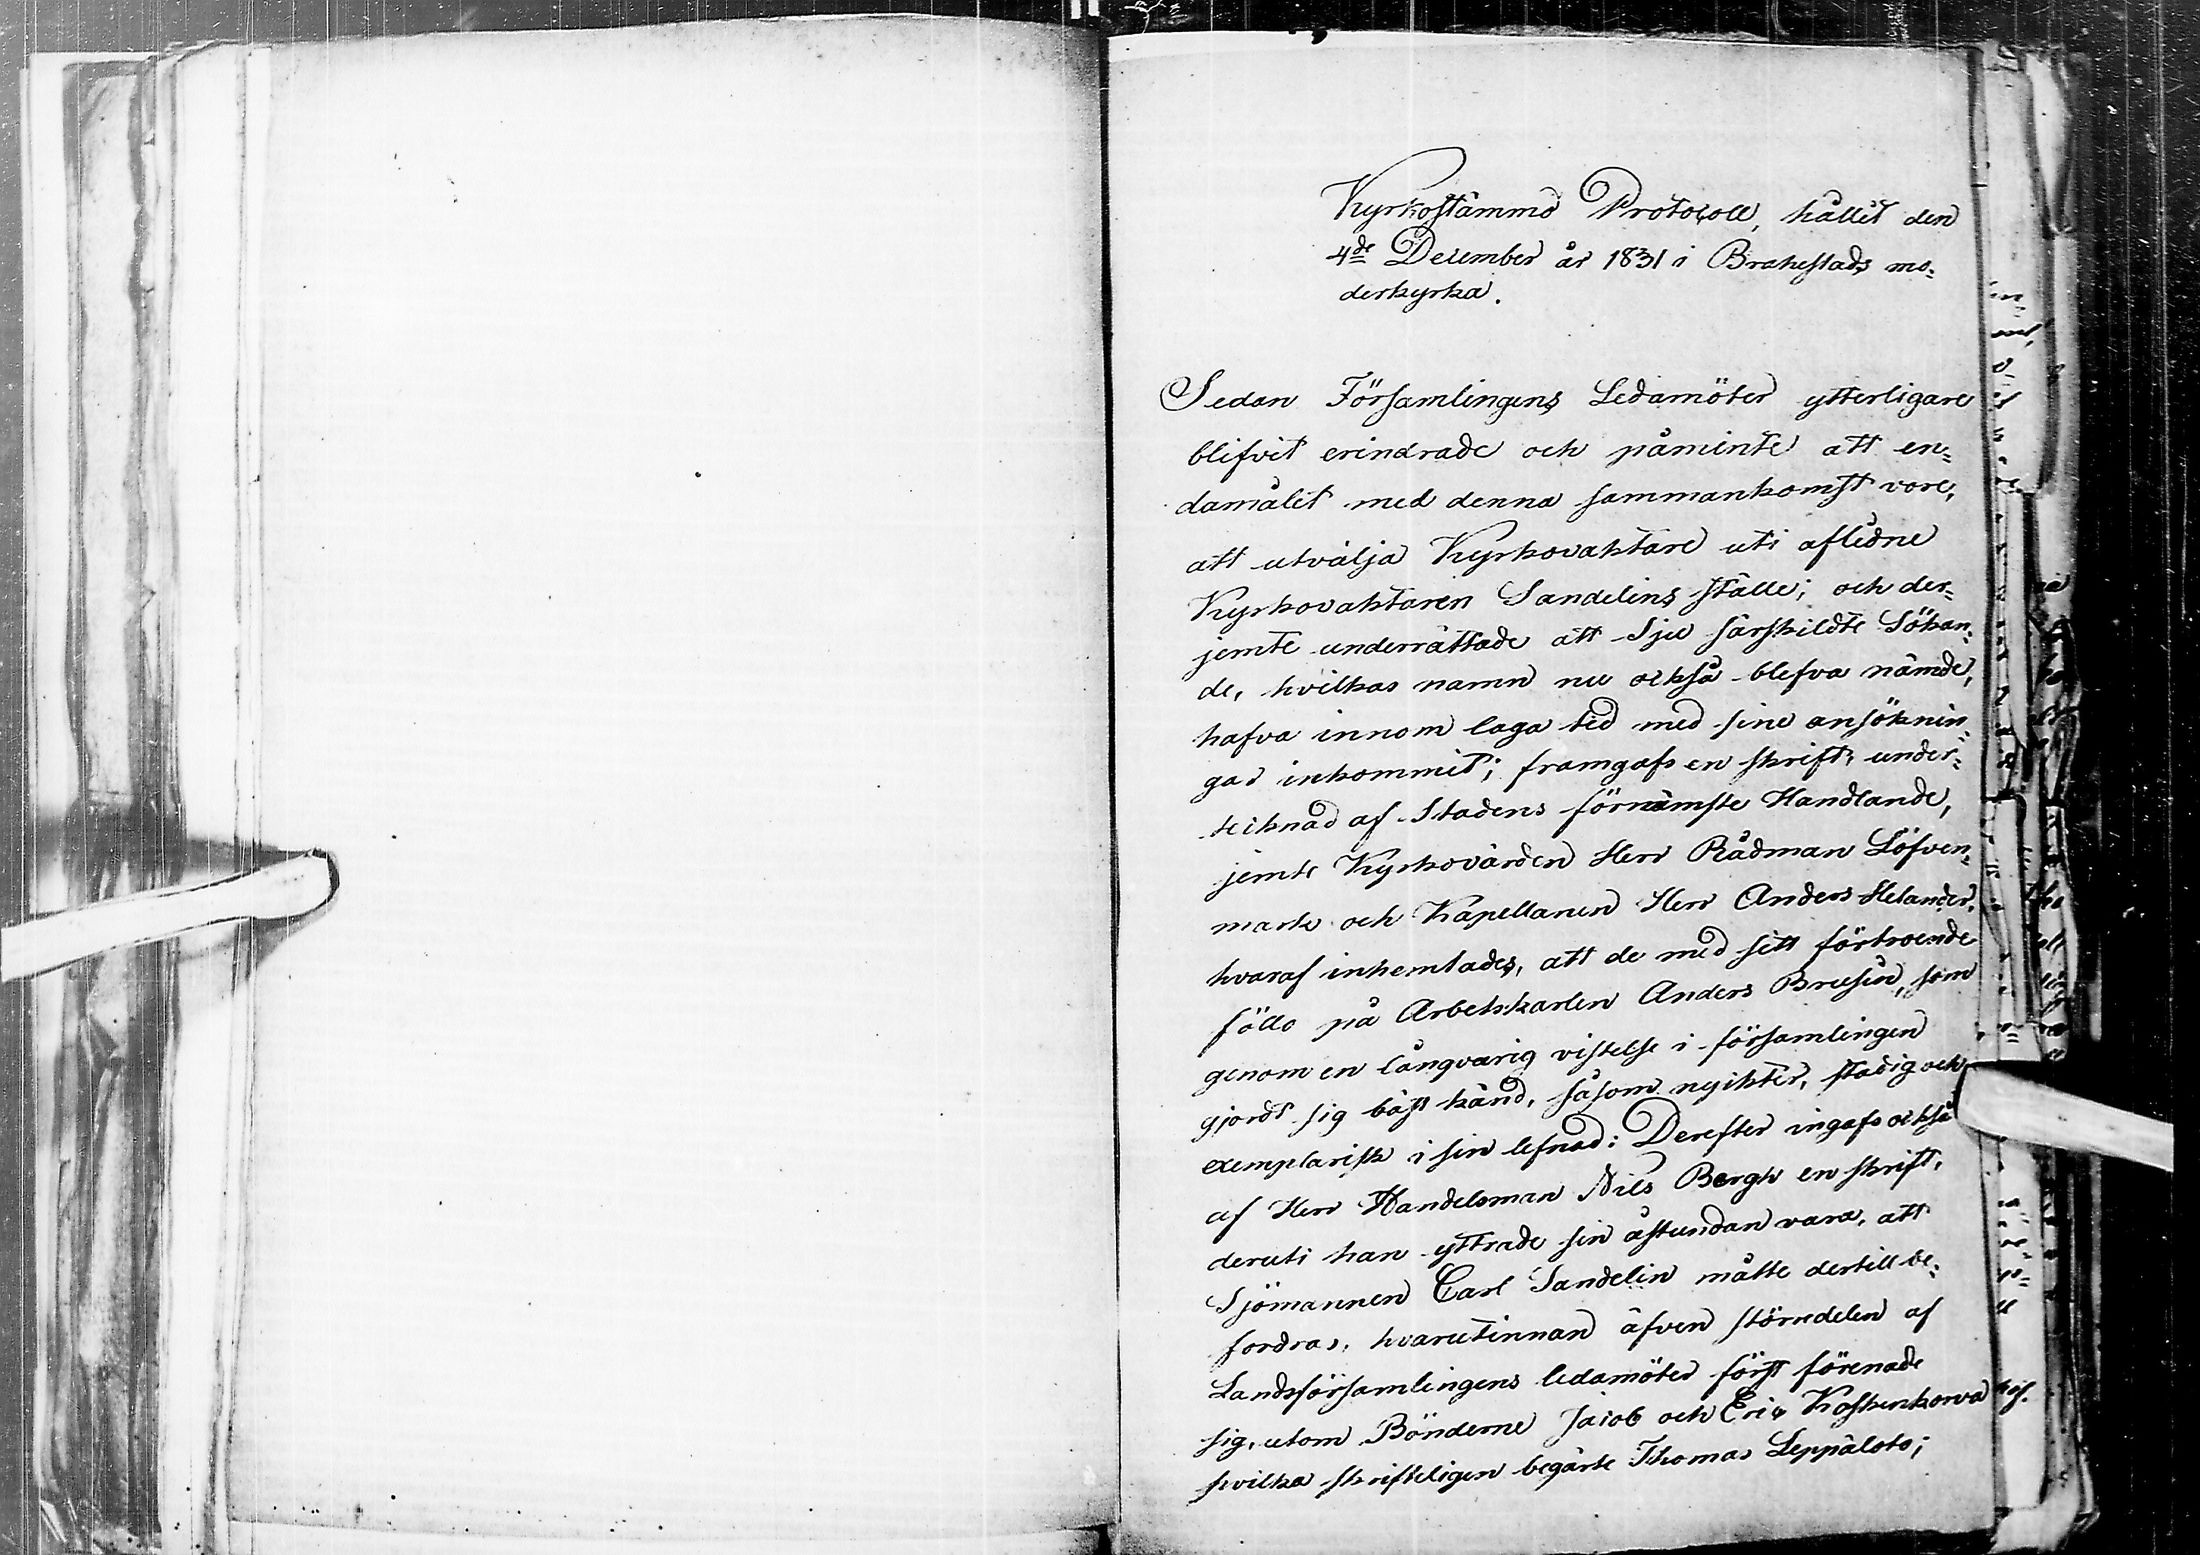 Kyrkostämmo Protocoll, hållit den
4de December år 1831 i Brahestads mo=
derkyrka.
Sedan Församlingens Ledamöter ytterligare
blifvit erindrade och påminte att en=
damålet med denna sammankomst vore,
att utvälja Kyrkovaktare uti aflidne
Kyrkovaktaren Sandelins ställe; och der=
jemte underrättade att Sju särskildte Sökan=
de, hvilkas namn nu också blefvo nämde,
hafva innom laga tid med sine ansöknin=
gar inkommit; framgafs en skrift, under=
teiknad af Stadens förnämste Handlande,
jemte Kyrkovärden Herr Rådman Löfven=
mark och Kapellanen Herr Anders Helander,
hvaraf inhemtades, att de med sitt förtroende
föllo på Arbetskarlen Anders Brusin, som
genom en långvarig vistelse i församlingen
gjordt sig bäst känd, såsom nyikter, stadig och
exemplarisk i sin lefnad: Derefter ingafs också
af Herr Handelsman Nils Bergh en skrift,
deruti han yttrade sin åstundan vara, att
Sjömannen Carl Sandelin måtte dertill be=
fordras, hvarutinnan äfven störredelen af
Landsförsamlingens ledamöter först förenade
sig, utom Bönderne Jacob och Eric Koskenkorva
hvilka skrifteligen begärte Thomas Leppäloto;